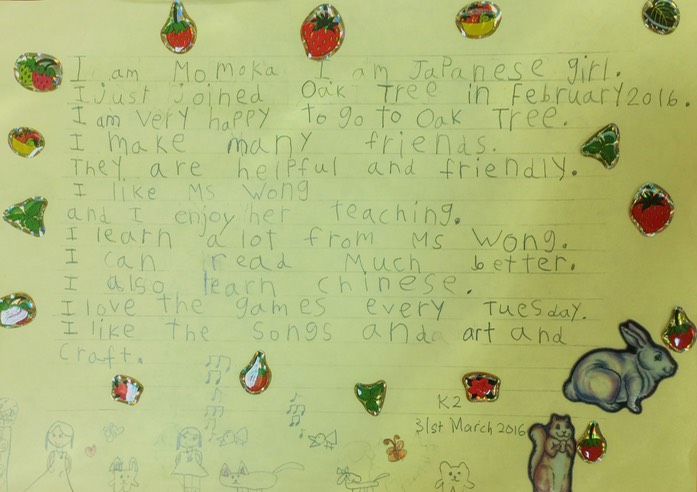 I am Momoka I am Japanese girl.
I just joined Oak Tree in February 2016.
I am very happy to go to Oak Tree.
I make many friends.
They are helpful and friendly.
I like Ms Wong
and I enjoy her teaching.
I learn a lot from Ms Wong.
I can read Much better.
I also learn chinese.
I love the games every Tuesday.
I like the songs anda art and
Craft.
K2
31st March 2016